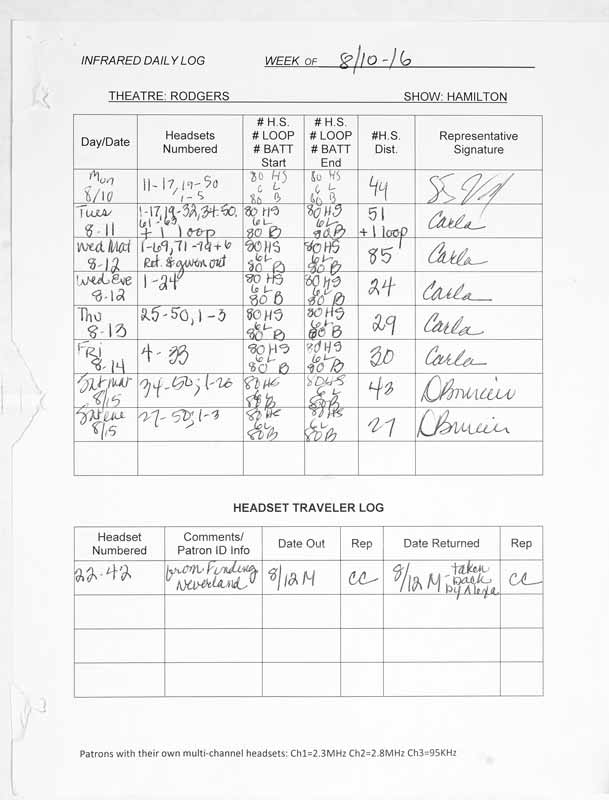 INFRARED DAILY LOG WEEK OF 8/10-16
THEATRE: RODGERS SHOW: HAMILTON
Day/Date Headsets Numbered # H.S. # LOOP # BATT Start # H.S. # LOOP # BATT End #H.S. Dist. Representative Signature
Mon 8/10 11-17, 19-50 1-5 80 HS 6 L 80 B 80 HS 6 L 80 B 44
Tues 8-11 1-17, 19-32, 34-50, 61-63 + 1 loop 80 HS 6L 80 B 80 HS 6L 80 B 51 +1 loop Carla
Wed Mat 8-12 1-69, 71-79 + 6 Ret. & given out 80 HS 6L 80 B 80 HS 6L 80 B 85 Carla
Wed Eve 8-12 1-24 80 HS 6L 80 B 80 HS 6L 80 B 24 Carla
Thu 8-13 25-50, 1-3 80 HS 6L 80 B 80 HS 6L 80 B 29 Carla
Fri 8-14 4-33 80 HS 6L 80 B 80 HS 6L 80 B 30 Carla
Sat mat 8/15 34-50; 1-26 80 HS 6L 80 B 80 HS 6L 80 B 43
Sat eve 8/15 27-50; 1-3 80 HS 6L 80 B 80 HS 6L 80 B 27
HEADSET TRAVELER LOG
Headset Numbered Comments/ Patron ID Info Date Out Rep Date Returned Rep
22-42 from Finding Neverland 8/12 M CC 8/12 M - taken back by Alexa CC
Patrons with their own multi-channel headsets: Ch1=2.3MHz Ch2=2.8MHz Ch3=95KHz